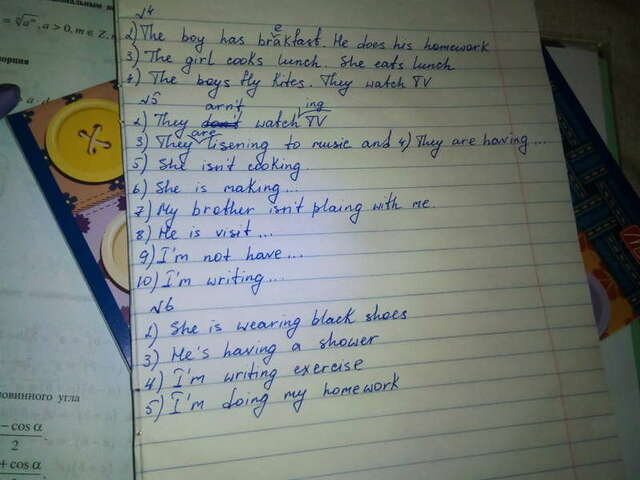 №4
2) The boy has breakfast. He does his homework
3) The girl cooks lunch. She eats lunch
4) The boys fly kites. They watch TV
№5
2) They arn't watching TV
3) They are lisening to music and 4) They are having...
5) She isn't cooking.
6) She is making...
7) My brother isn't plaing with me.
8) He is visit...
9) I'm not have...
10) I'm writing...
№6
2) She is wearing black shoes
3) He's having a shower
4) I'm writing exercise
5) I'm doing my homework
орция
ловинного угла
− cos α
2
+ cos α